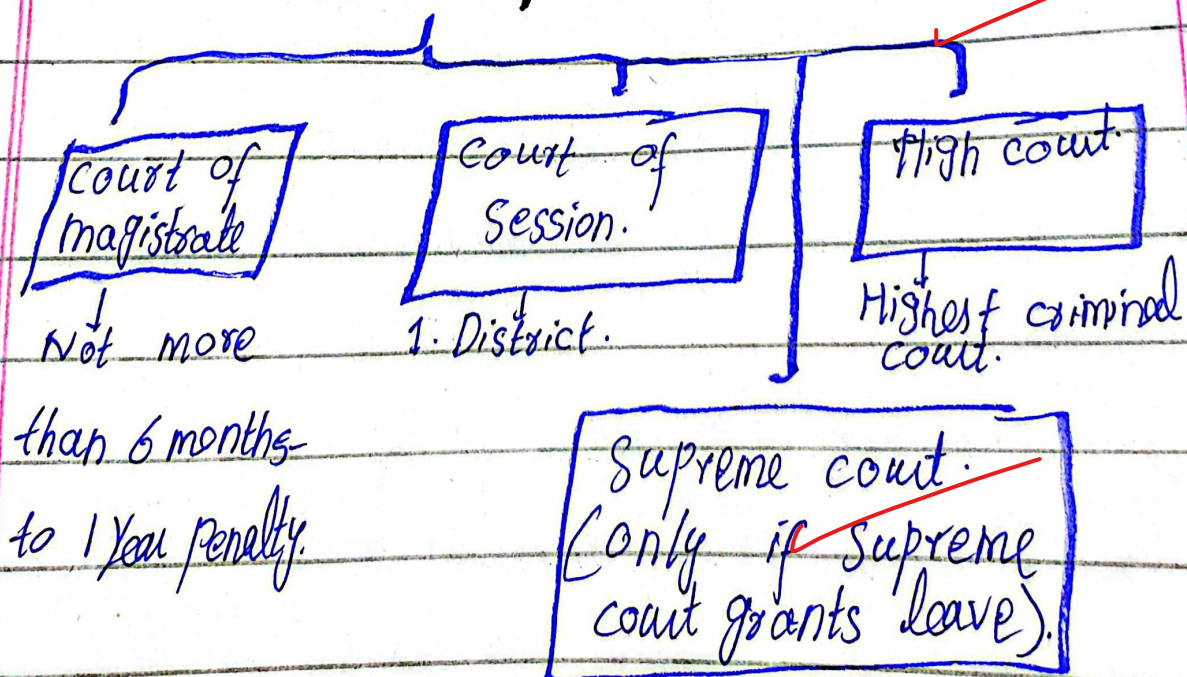 Court of
magistrate
Not more
than 6 months-
to 1 Year penalty.
Court of
Session.
1. District.
High court.
Highest criminal
court.
Supreme court.
(only if Supreme
court grants leave).